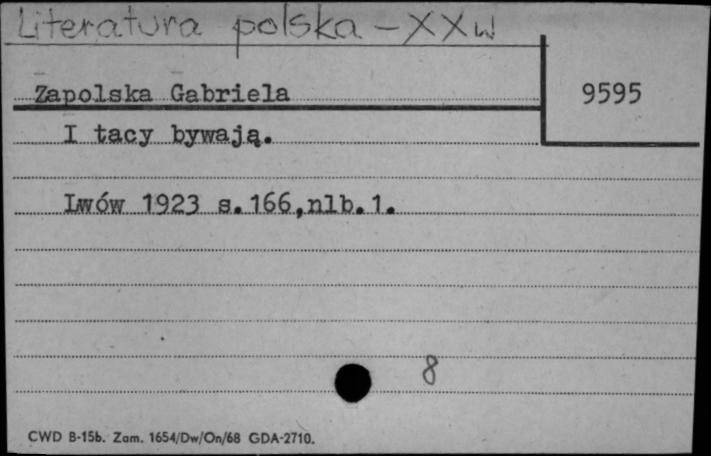 Literatura polska - XX w
Zapolska Gabriela
9595
I tacy bywają.
Lwów 1923 s.166,nlb.1.
8
CWD B-15b. Zam. 1654/Dw/On/68 GDA-2710.